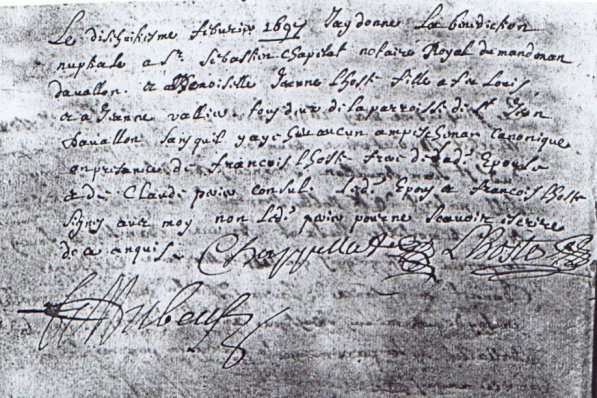 Le dischuitisme febvrier 1697 Jay donne La benediction
nuptiale a Sr. Sebastien Chapelat notaire Royal du mandemen
davallon et a Demoiselle Jeanne Lhoste fille a feu Louis
et a Jeanne vallier tous deux de la parroisse de St. Jean
Davallon sans quil y aye heu aucun ampeschemen Canonique
en presence de francois Lhoste frac de lade. Epouse
et de Claude paris Consul. Lede. Epoux et francois Lhoste
signs avec moy non Lede. paris pour ne scavoir escrire
de ce anquis.
Chappellat Lhoste
Dubeuf